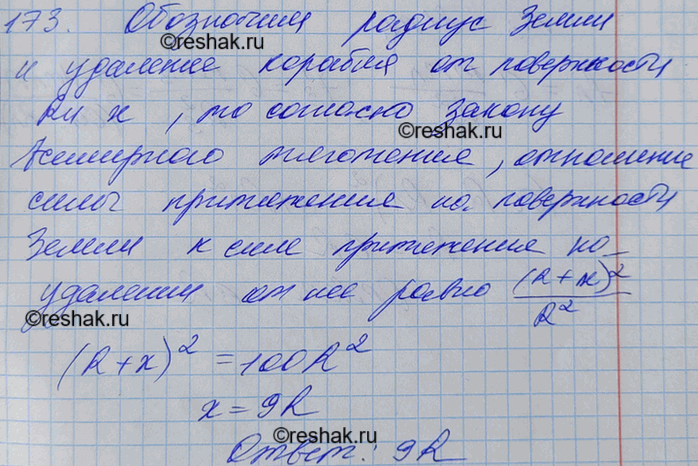 173. Обозначим радиус Земли
©reshak.ru
и удаление корабля от поверхности
R и x, то согласно закону
©reshak.ru
всемирного тяготения, отношение
силы притяжения на поверхности
Земли к силе притяжения на
удалении от нее равно (R+x)²/R²
©reshak.ru
(R+x)² = 100R²
x = 9R
©reshak.ru
Ответ: 9R